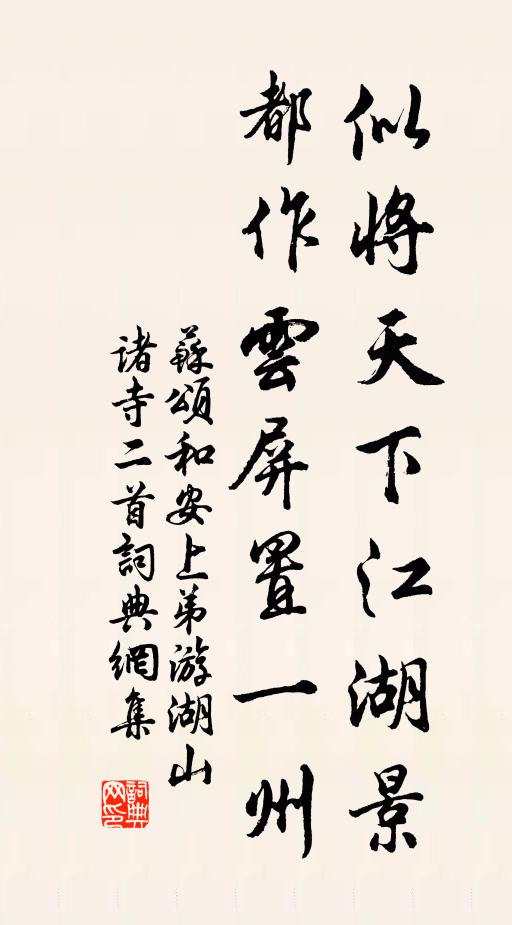 似將天下江湖景
都作雲屏置一州
蘇頌和安上弟游湖山
諸寺二首詞典網集
詞典
网印